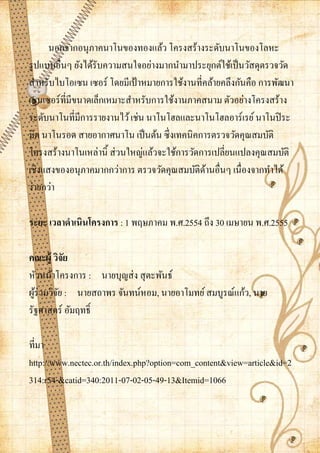 นอกจากอนุภาคนาโนของทองแล้ว โครงสร้างระดับนาโนของโลหะ
รูปแบบอื่นๆ ยังได้รับความสนใจอย่างมากนำมาประยุกต์ใช้เป็นวัสดุตรวจวัด
สำหรับไบโอเซนเซอร์ โดยมีเป้าหมายการใช้งานที่คล้ายคลึงกันคือ การพัฒนา
เซนเซอร์ที่มีขนาดเล็กเหมาะสำหรับการใช้งานภาคสนาม ตัวอย่างโครงสร้าง
ระดับนาโนที่มีการรายงานไว้ เช่น นาโนโฮลและนาโนโฮลอาร์เรย์ นาโนปิระ
มิด นาโนรอด สายอากาศนาโน เป็นต้น ซึ่งเทคนิคการตรวจวัดคุณสมบัติ
โครงสร้างนาโนเหล่านี้ ส่วนใหญ่แล้วจะใช้การวัดการเปลี่ยนแปลงคุณสมบัติ
เชิงแสงของอนุภาคมากกว่าการ ตรวจวัดคุณสมบัติด้านอื่นๆ เนื่องจากทำได้
ง่ายกว่า
ระยะ เวลาดำเนินโครงการ : 1 พฤษภาคม พ.ศ.2554 ถึง 30 เมษายน พ.ศ.2555
คณะผู้ วิจัย
หัวหน้าโครงการ : นายบุญส่ง สุตะพันธ์
ผู้ร่วมวิจัย : นายสถาพร จันทน์หอม, นายอาโมทย์ สมบูรณ์แก้ว, นาย
รัฐศาสตร์ อัมฤทธิ์
ที่มา
http://www.nectec.or.th/index.php?option=com_content&view=article&id=2
314:r54-&catid=340:2011-07-02-05-49-13&Itemid=1066